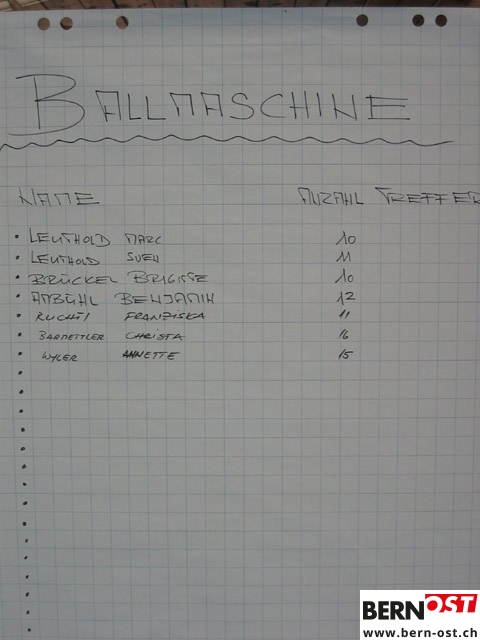 BALLMASCHINE
NAME ANZAHL TREFFER
• LEUTHOLD MARC 10
• LEUTHOLD SVEN 11
• BRÜCKEL BRIGITTE 10
• AMBÜHL BENJAMIN 12
• RUCHTI FRANZISKA 11
• BARMETTLER CHRISTA 16
• WYLER ANNETTE 15
BERNOST
www.bern-ost.ch